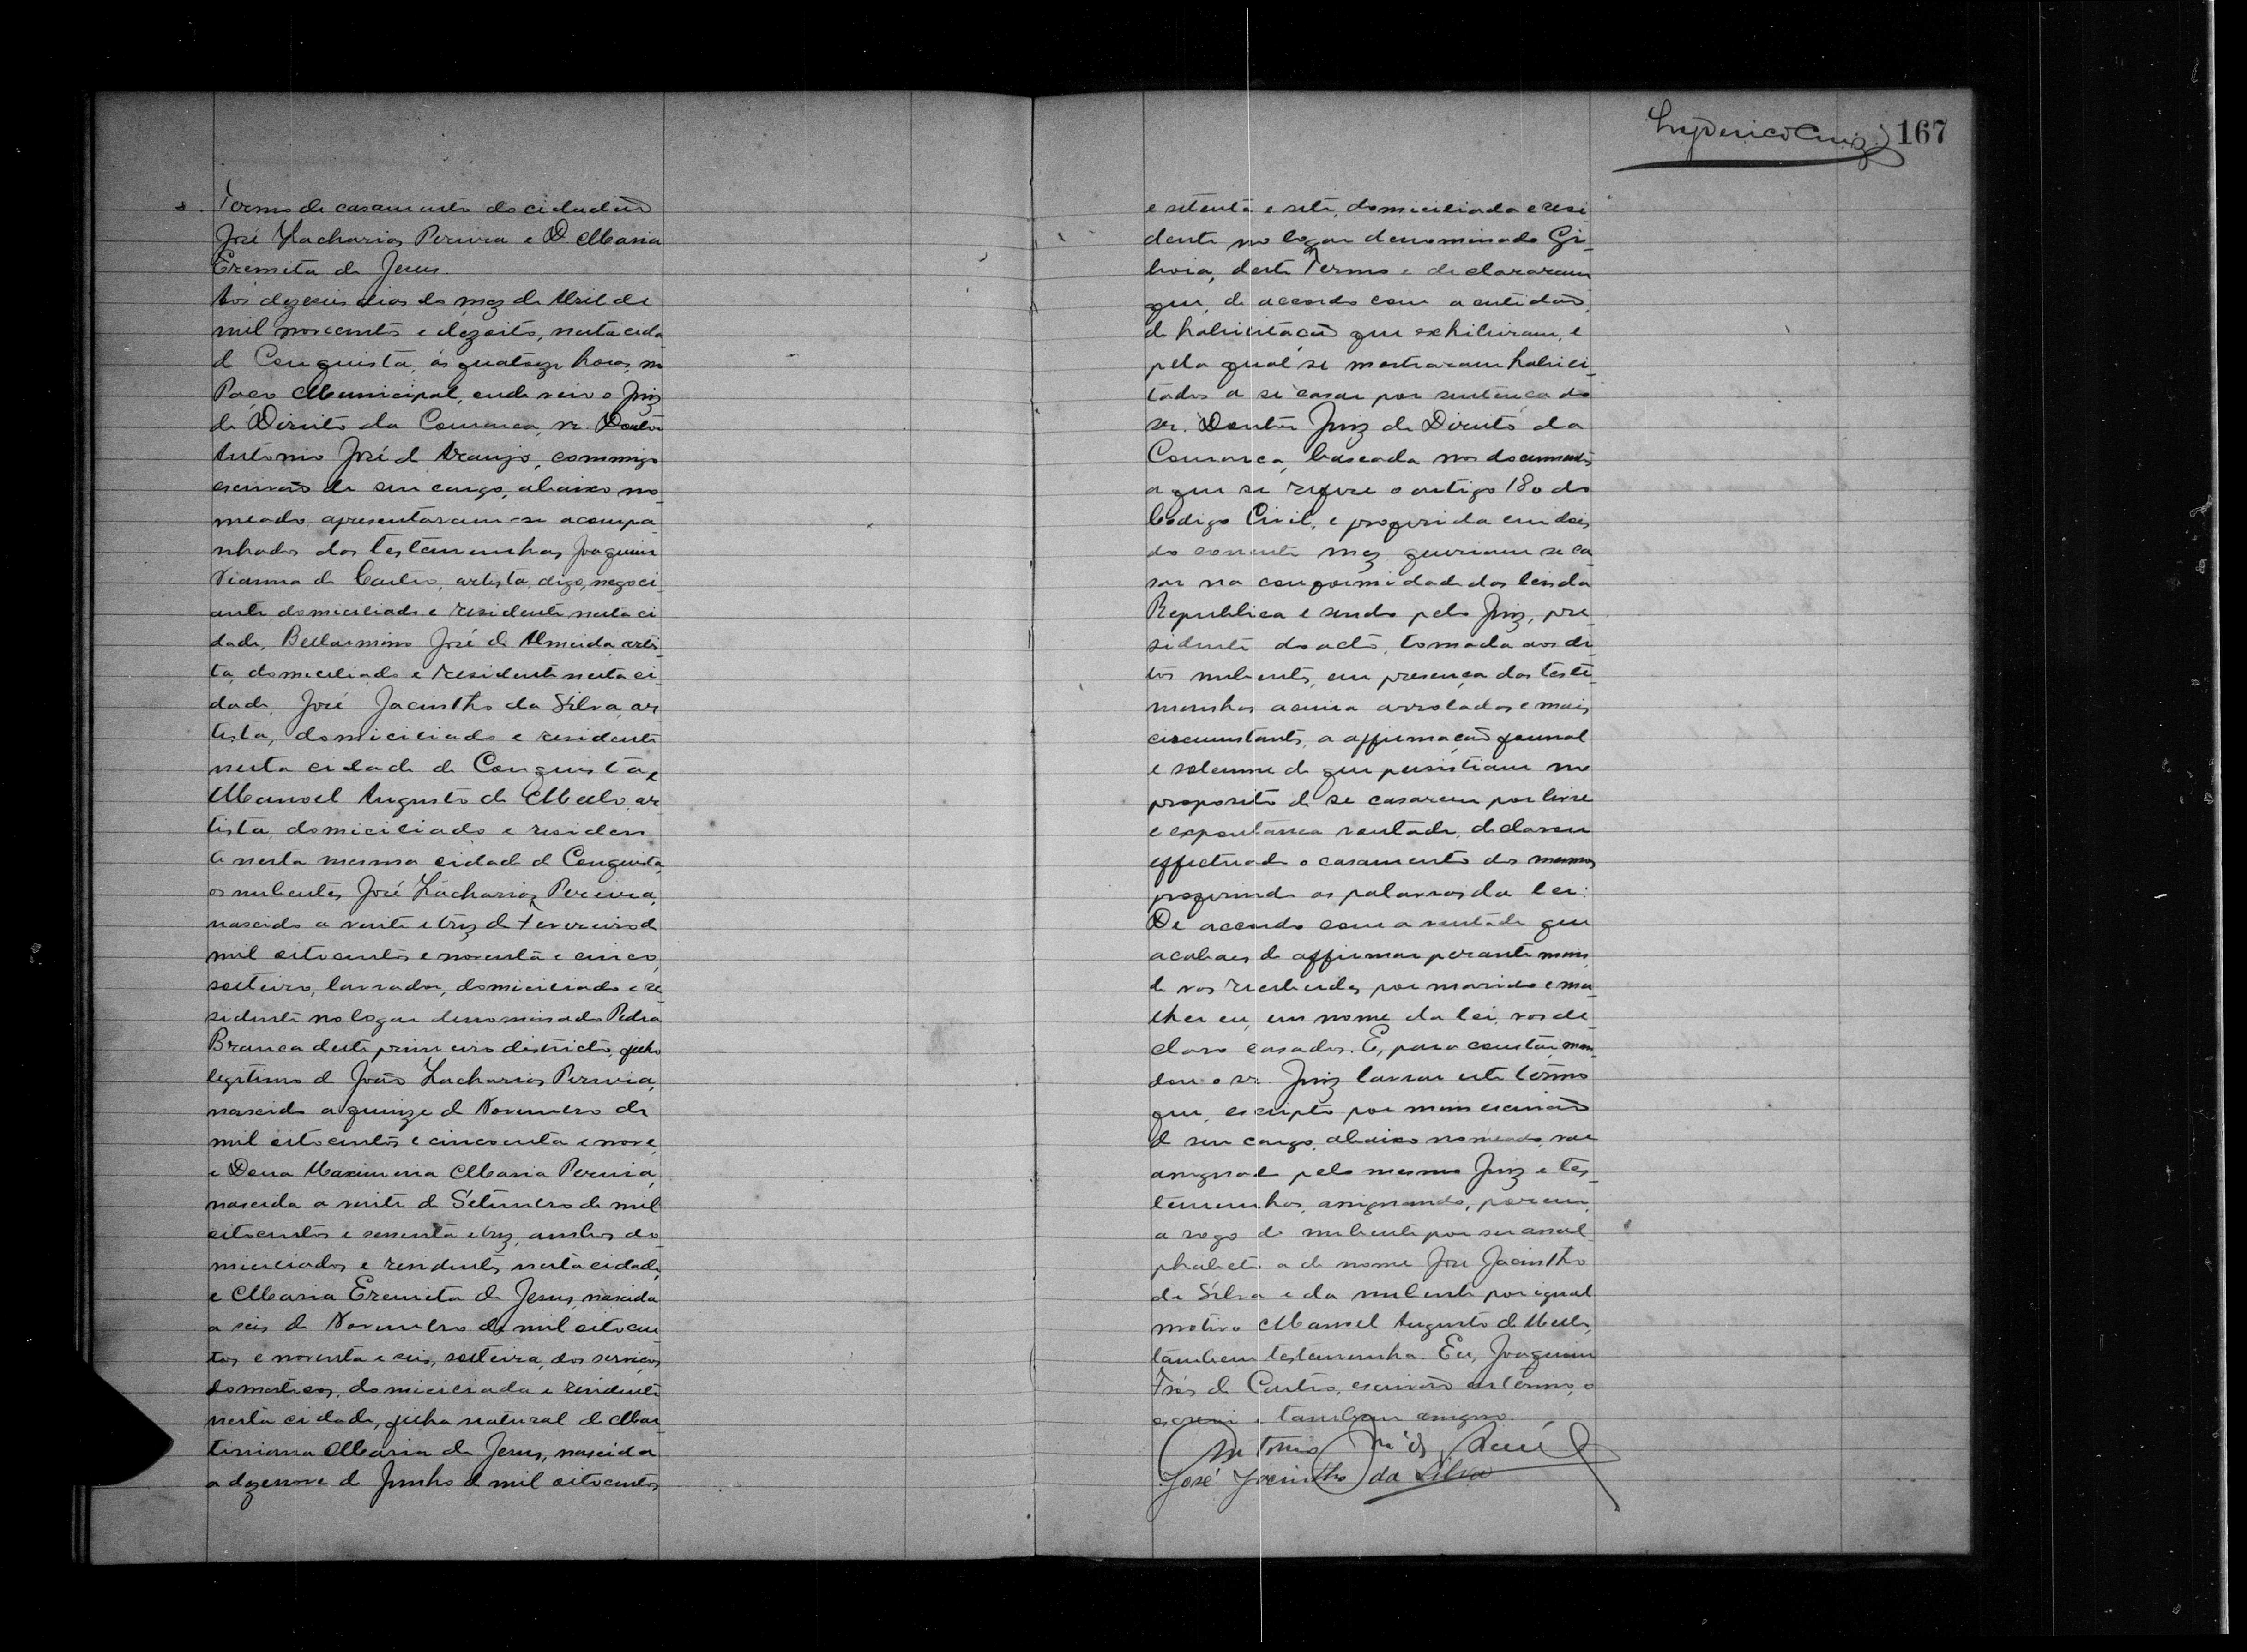 Termo de casamento do cidadão
José Zacharias Pereira e D. Maria
Eremita de Jesus.
Aos dezeseis dias do mez de Abril de
mil novecentos e dezoito, nesta cida
de Conquista, ás quatorze horas, no
Paço Municipal, onde veio o Juiz
de Direito da Comarca, sr. Doutor
Antonio José de Araujo, commigo
escrivão de seu cargo, abaixo no-
meado, apresentaram-se acompa-
nhados das testemunhas Joaquim
Vianna de Castro, artista, digo, negoci-
ante domiciliado e residente nesta ci-
dade, Bellarmino José de Almeida, artis-
ta, domiciliado e residente nesta ci-
dade, José Jacintho da Silva, ar
tista, domiciliado e residente
nesta cidade de Conquista e
Manoel Augusto de Mello, ar
tista, domiciliado e residen
te nesta mesma cidade de Conquista,
os nubentes José Zacharias Pereira,
nascido a vinte e trez de Fevereiro de
mil oitocentos e noventa e cinco,
solteiro, lavrador, domiciliado e re-
sidente no logar denominado Pedra
Branca deste primeiro districto, filho
legitimo de João Zacharias Pereira,
nascido a quinze de Novembro de
mil oitocentos e cincoenta e nove,
e Dona Maximina Maria Pereira,
nascida a vinte de Setembro de mil
oitocentos e sessenta e trez, ambos do-
miciliados e residentes nesta cidade,
e Maria Eremita de Jesus, nascida
a seis de Novembro de mil oitocen-
tos e noventa e seis, solteira, dos serviços
domesticos, domiciliada e residente
nesta cidade, filha natural de Mar
tiniana Maria de Jesus, nascida
a dezenove de Junho de mil oitocentos
167
e setenta e sete, domiciliada e resi-
dente no logar denominado Gi-
boia, deste Termo e declararam
que, de accordo com a certidão
de habilitação que exhibiram, e
pela qual se mostraram habili-
tados a se casar por sentença do
sr. Doutor Juiz de Direito da
Comarca, baseada nos documentos
a que se refere o artigo 180 do
Codigo Civil, e proferida em dois
do corrente mez, queriam se ca
sar na conformidade das leis da
Republica e sendo pelo Juiz, pre-
sidente do acto, tomada aos di-
tos nubentes, em presença das teste-
munhas acima arroladas e mais
circumstantes, a affirmação formal
e solemne de que persistiam no
proposito de se casarem por livre
e expontanea vontade, declarou
effectuado o casamento dos mesmos
proferindo as palavras da lei:
De accordo com a vontade que
acabaes de affirmar perante mim,
de vos receberdes por marido e mu-
lher eu, em nome da lei, vos de-
claro casados. E, para constar, man-
dou o sr. Juiz lavrar este termo
que, escripto por mim escrivão
de seu cargo, abaixo nomeado, vae
assignado pelo mesmo Juiz e tes-
temunhas, assignando, porem,
a rogo do nubente por ser anal
phabeto a de nome José Jacintho
da Silva e da nubente por igual
motivo Manoel Augusto de Mello,
tambem testemunha. Eu, Joaquim
Fróes de Castro, escrivão interino, o
escrevi e tambem assigno.
José Jacintho da Silva